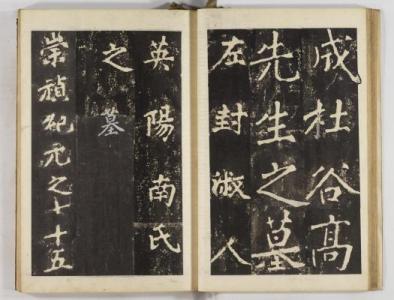 成杜谷高
先生之墓
左封淑人
英陽南氏
之墓
崇禎紀元之七十五